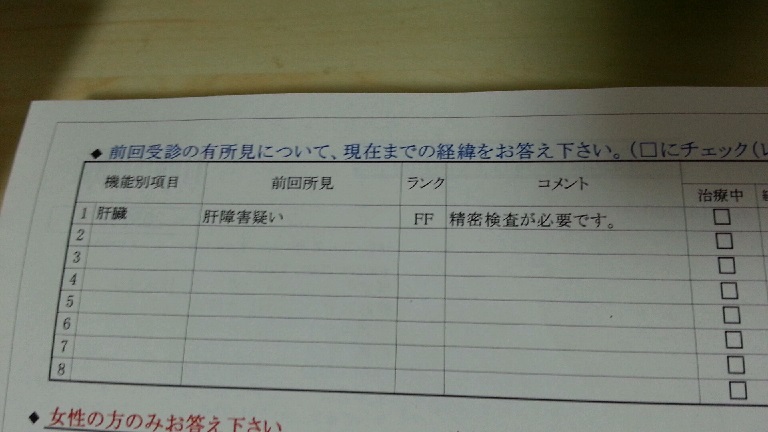 ◆ 前回受診の有所見について、現在までの経緯をお答え下さい。(□にチェック(レ
機能別項目 前回所見 ランク コメント
治療中
1 肝臓 肝障害疑い FF 精密検査が必要です。 □
2 □
3 □
4 □
5 □
6 □
7 □
8 □
◆ 女性の方のみお答え下さい